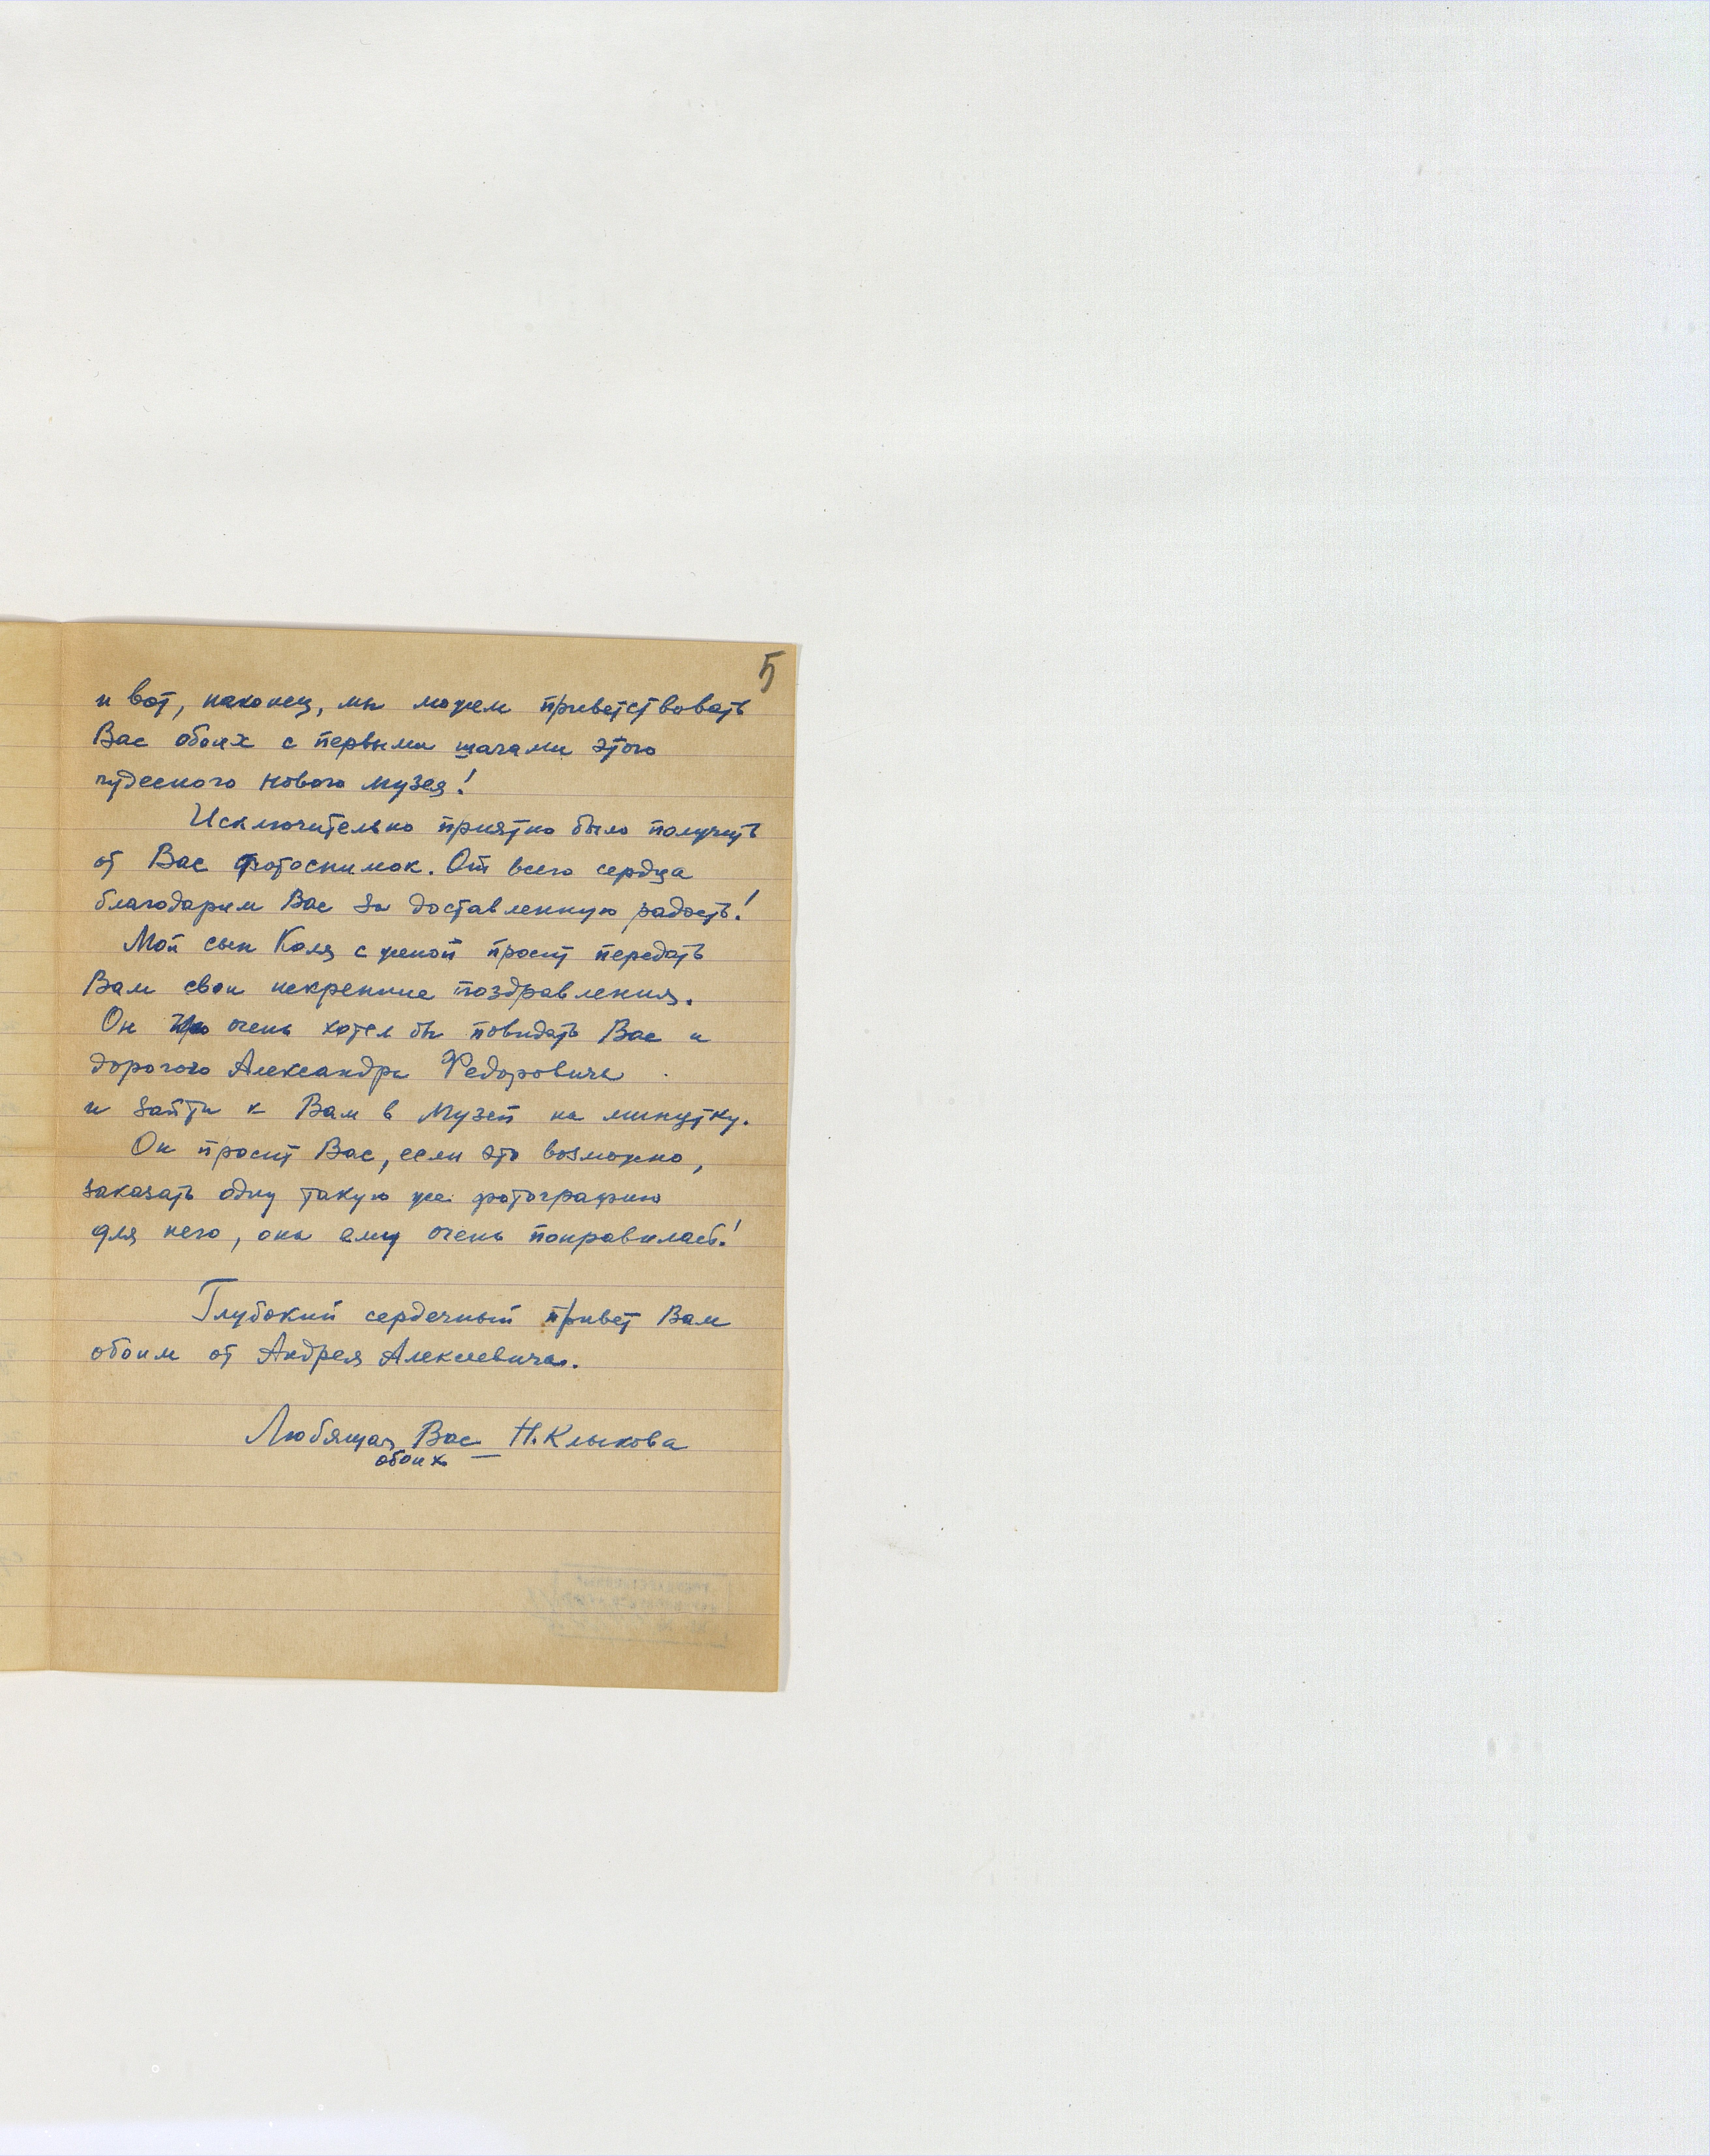 5
и вот, наконец, мы можем приветствовать
Вас обоих с первыми шагами этого
чудесного нового музея!
Исключительно приятно было получить
от Вас фотоснимок. От всего сердца
благодарим Вас за доставленную радость!
Мой сын Коля с женой просит передать
Вам свои искренние поздравления.
Он очень хотел бы повидать Вас и
дорогого Александра Федоровича
и зайти к Вам в музей на минутку.
Он просит Вас, если это возможно,
заказать одну такую же фотографию
для него, она ему очень понравилась!
Глубокий сердечный привет Вам
обоим от Андрея Алексеевича.
Любящая Вас Н. Клыкова
обоих